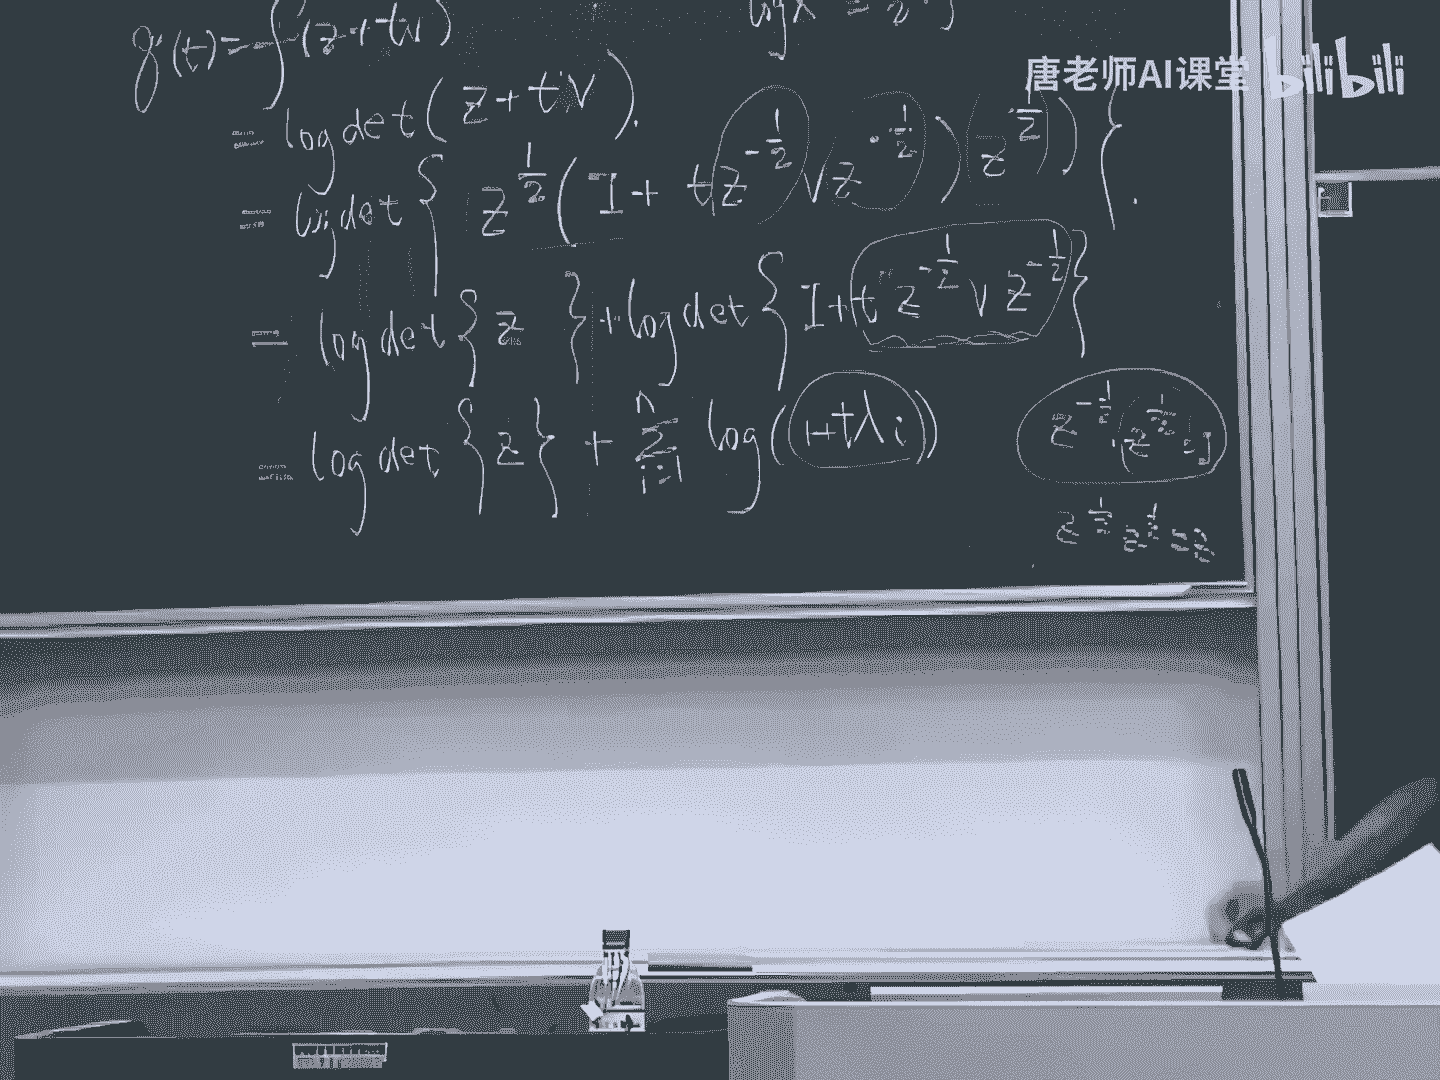 g(t) = f(z+tv)
log x =
唐老师AI课堂 bilibili
= log det ( z + tv ).
= log det { z^{1/2} ( I + t z^{-1/2} v z^{-1/2} ) ( z^{1/2} ) }.
= log det { z } + log det { I + t z^{-1/2} v z^{-1/2} }
= log det { z } + \sum_{i=1}^{n} log ( 1+tλ_i )
z^{1/2} z^{1/2} = z